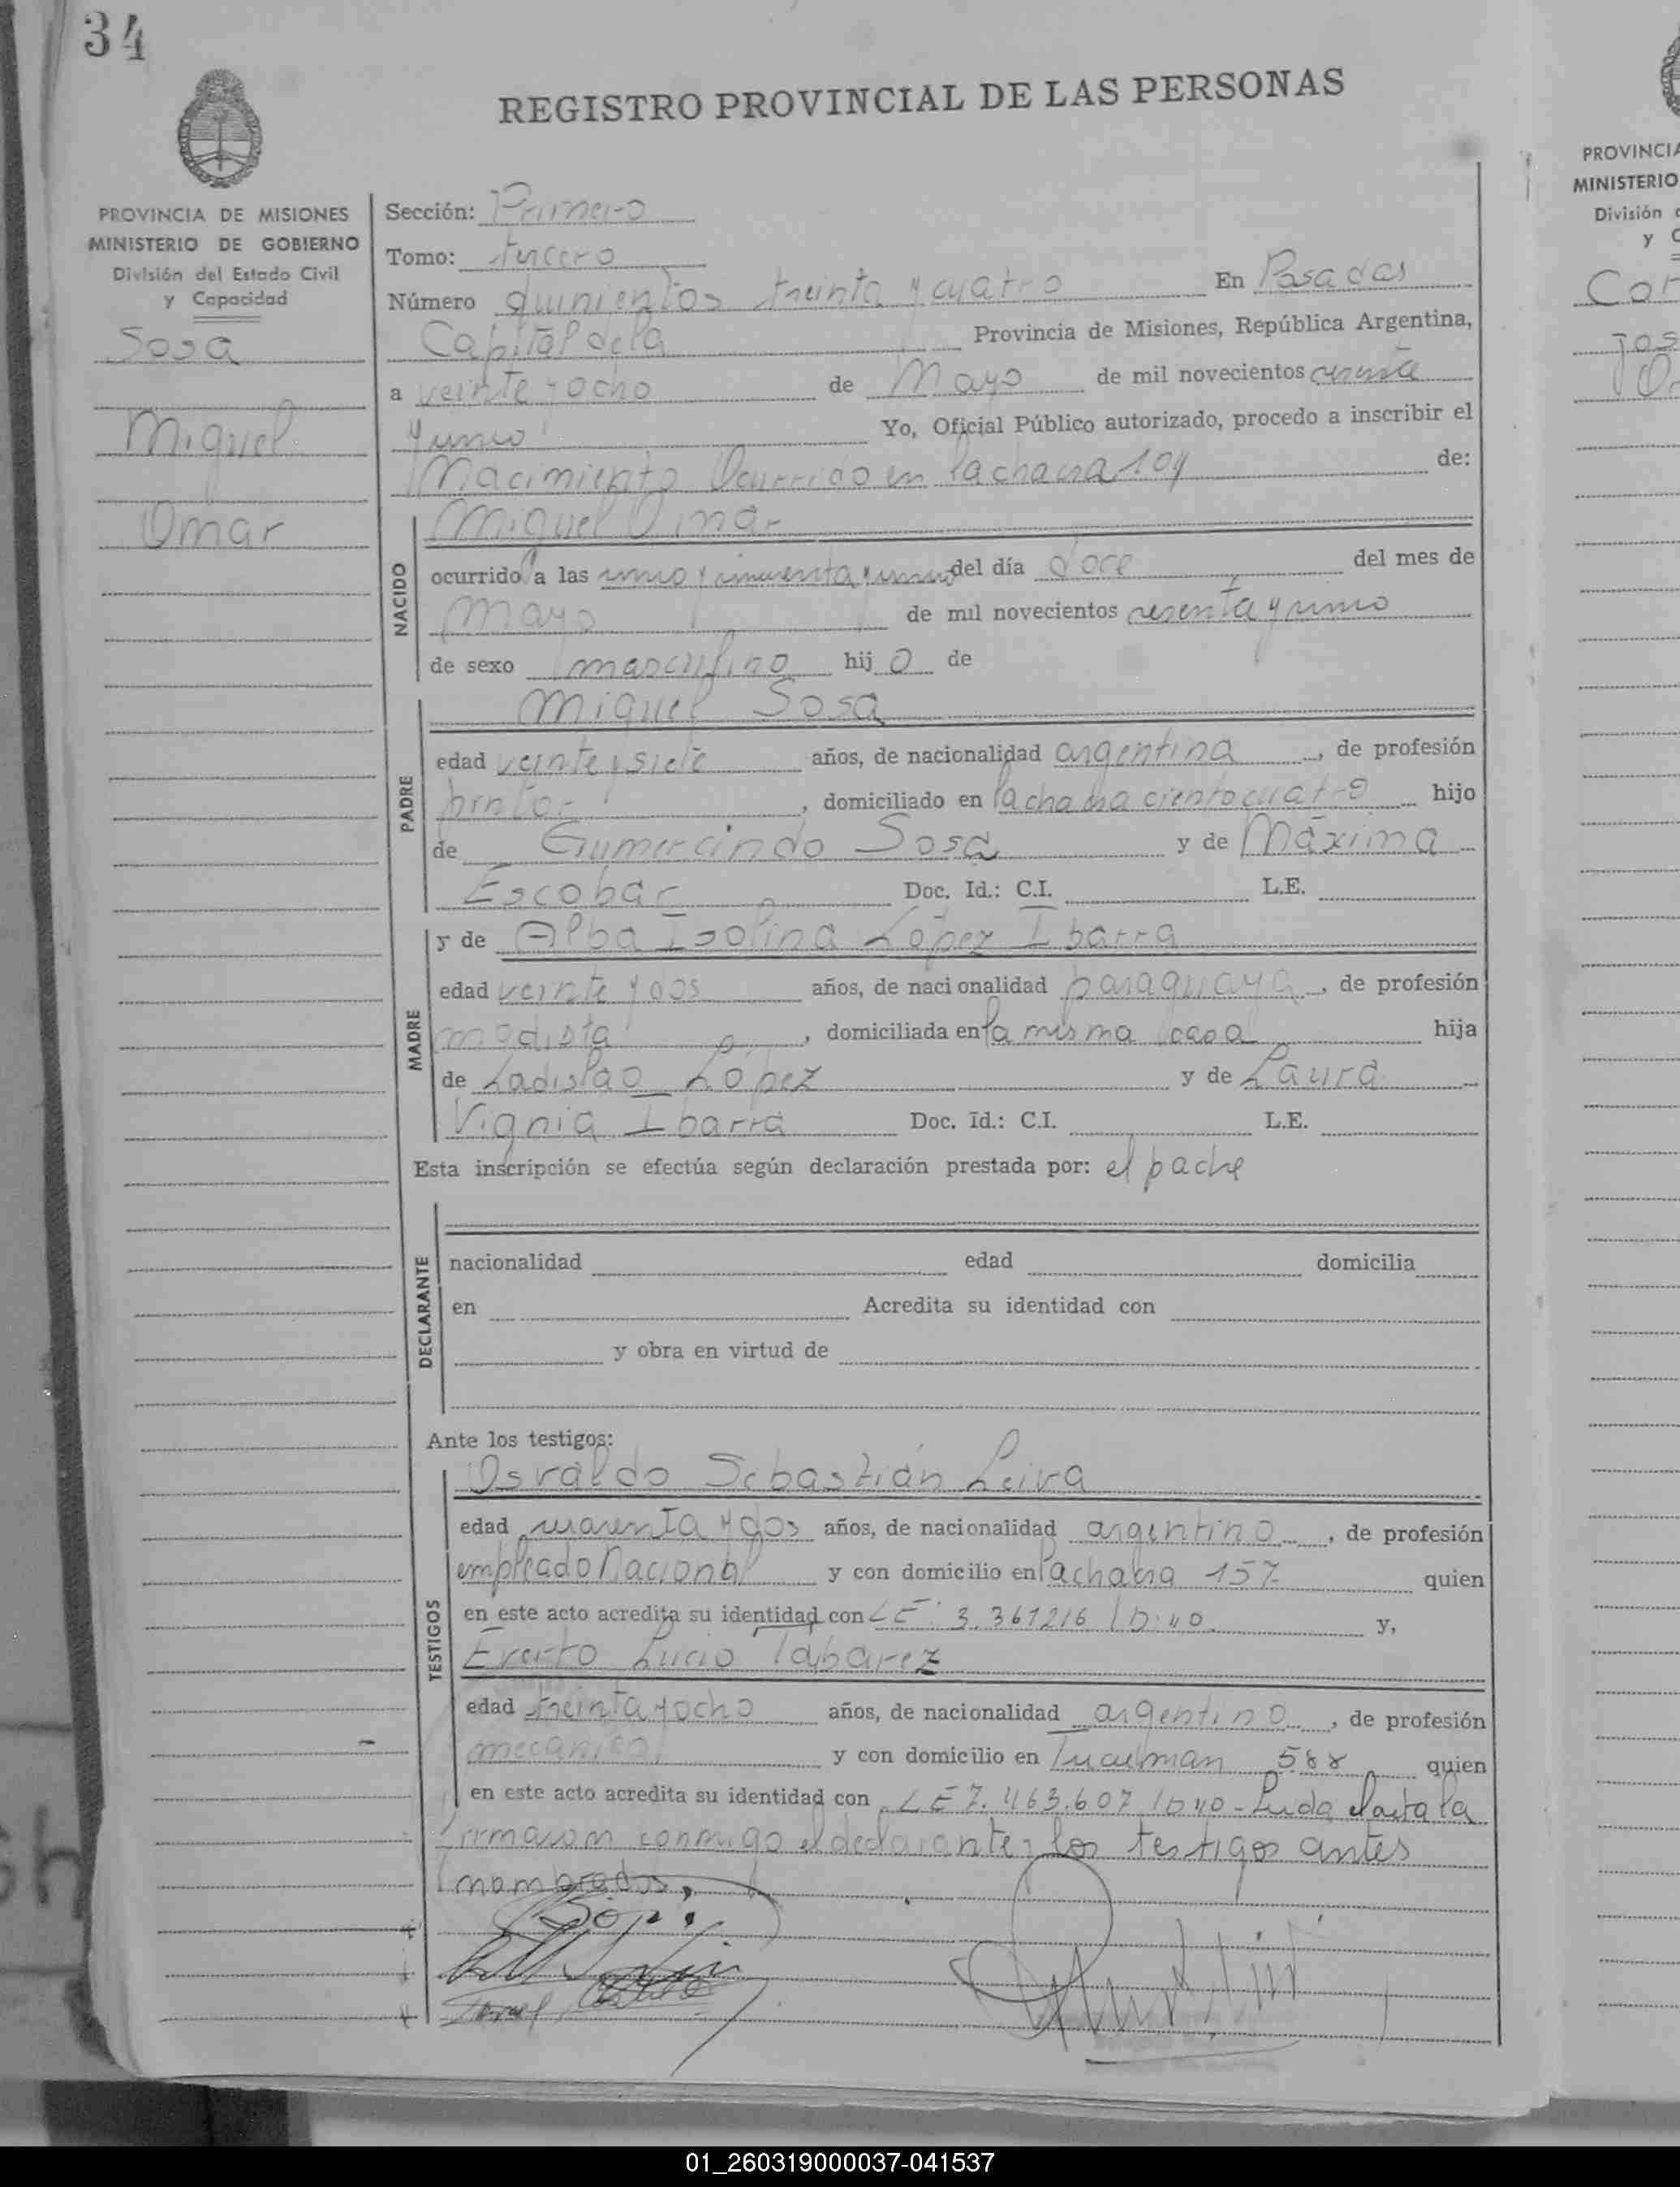 34
REGISTRO PROVINCIAL DE LAS PERSONAS
PROVINCIA DE MISIONES
MINISTERIO DE GOBIERNO
División del Estado Civil
y Capacidad
Sosa
Miguel
Omar
Sección: Primero
Tomo: tercero
Número quinientos treinta y cuatro En Posadas
Capital de la Provincia de Misiones, República Argentina,
a veinte y ocho de Mayo de mil novecientos sesenta
y uno Yo, Oficial Público autorizado, procedo a inscribir el
Nacimiento Ocurrido en la chacra 104 de:
NACIDO
Miguel Omar
ocurrido a las una y cincuenta y del día doce del mes de
Mayo de mil novecientos sesenta y uno
de sexo masculino hijo de
PADRE
Miguel Sosa
edad veinte y siete años, de nacionalidad argentina, de profesión
pintor, domiciliado en la chacra ciento cuatro hijo
de Gumercindo Sosa y de Máxima
Escobar Doc. Id.: C.I. L.E.
MADRE
y de Alba Isolina López Ibarra
edad veinte y dos años, de nacionalidad paraguaya, de profesión
modista, domiciliada en la misma casa hija
de Ladislao López y de Laura
Ibarra Doc. Id.: C.I. L.E.
Esta inscripción se efectúa según declaración prestada por: el padre
DECLARANTE
nacionalidad edad domicilia
en Acredita su identidad con
y obra en virtud de
Ante los testigos:
TESTIGOS
Osvaldo Sebastián Leiva
edad cuarenta y dos años, de nacionalidad argentino, de profesión
empleado Nacional y con domicilio en la chacra 157 quien
en este acto acredita su identidad con LE. 3.361216 y,
Lucio Tabarez
edad treinta y ocho años, de nacionalidad argentino, de profesión
mecánico y con domicilio en Tucuman 588 quien
en este acto acredita su identidad con LE 7.463.607 - Leida el acta la
firmaron conmigo el declarante y los testigos antes
nombrados.
PROVINCIA
MINISTERIO
División
y C
01_260319000037-041537